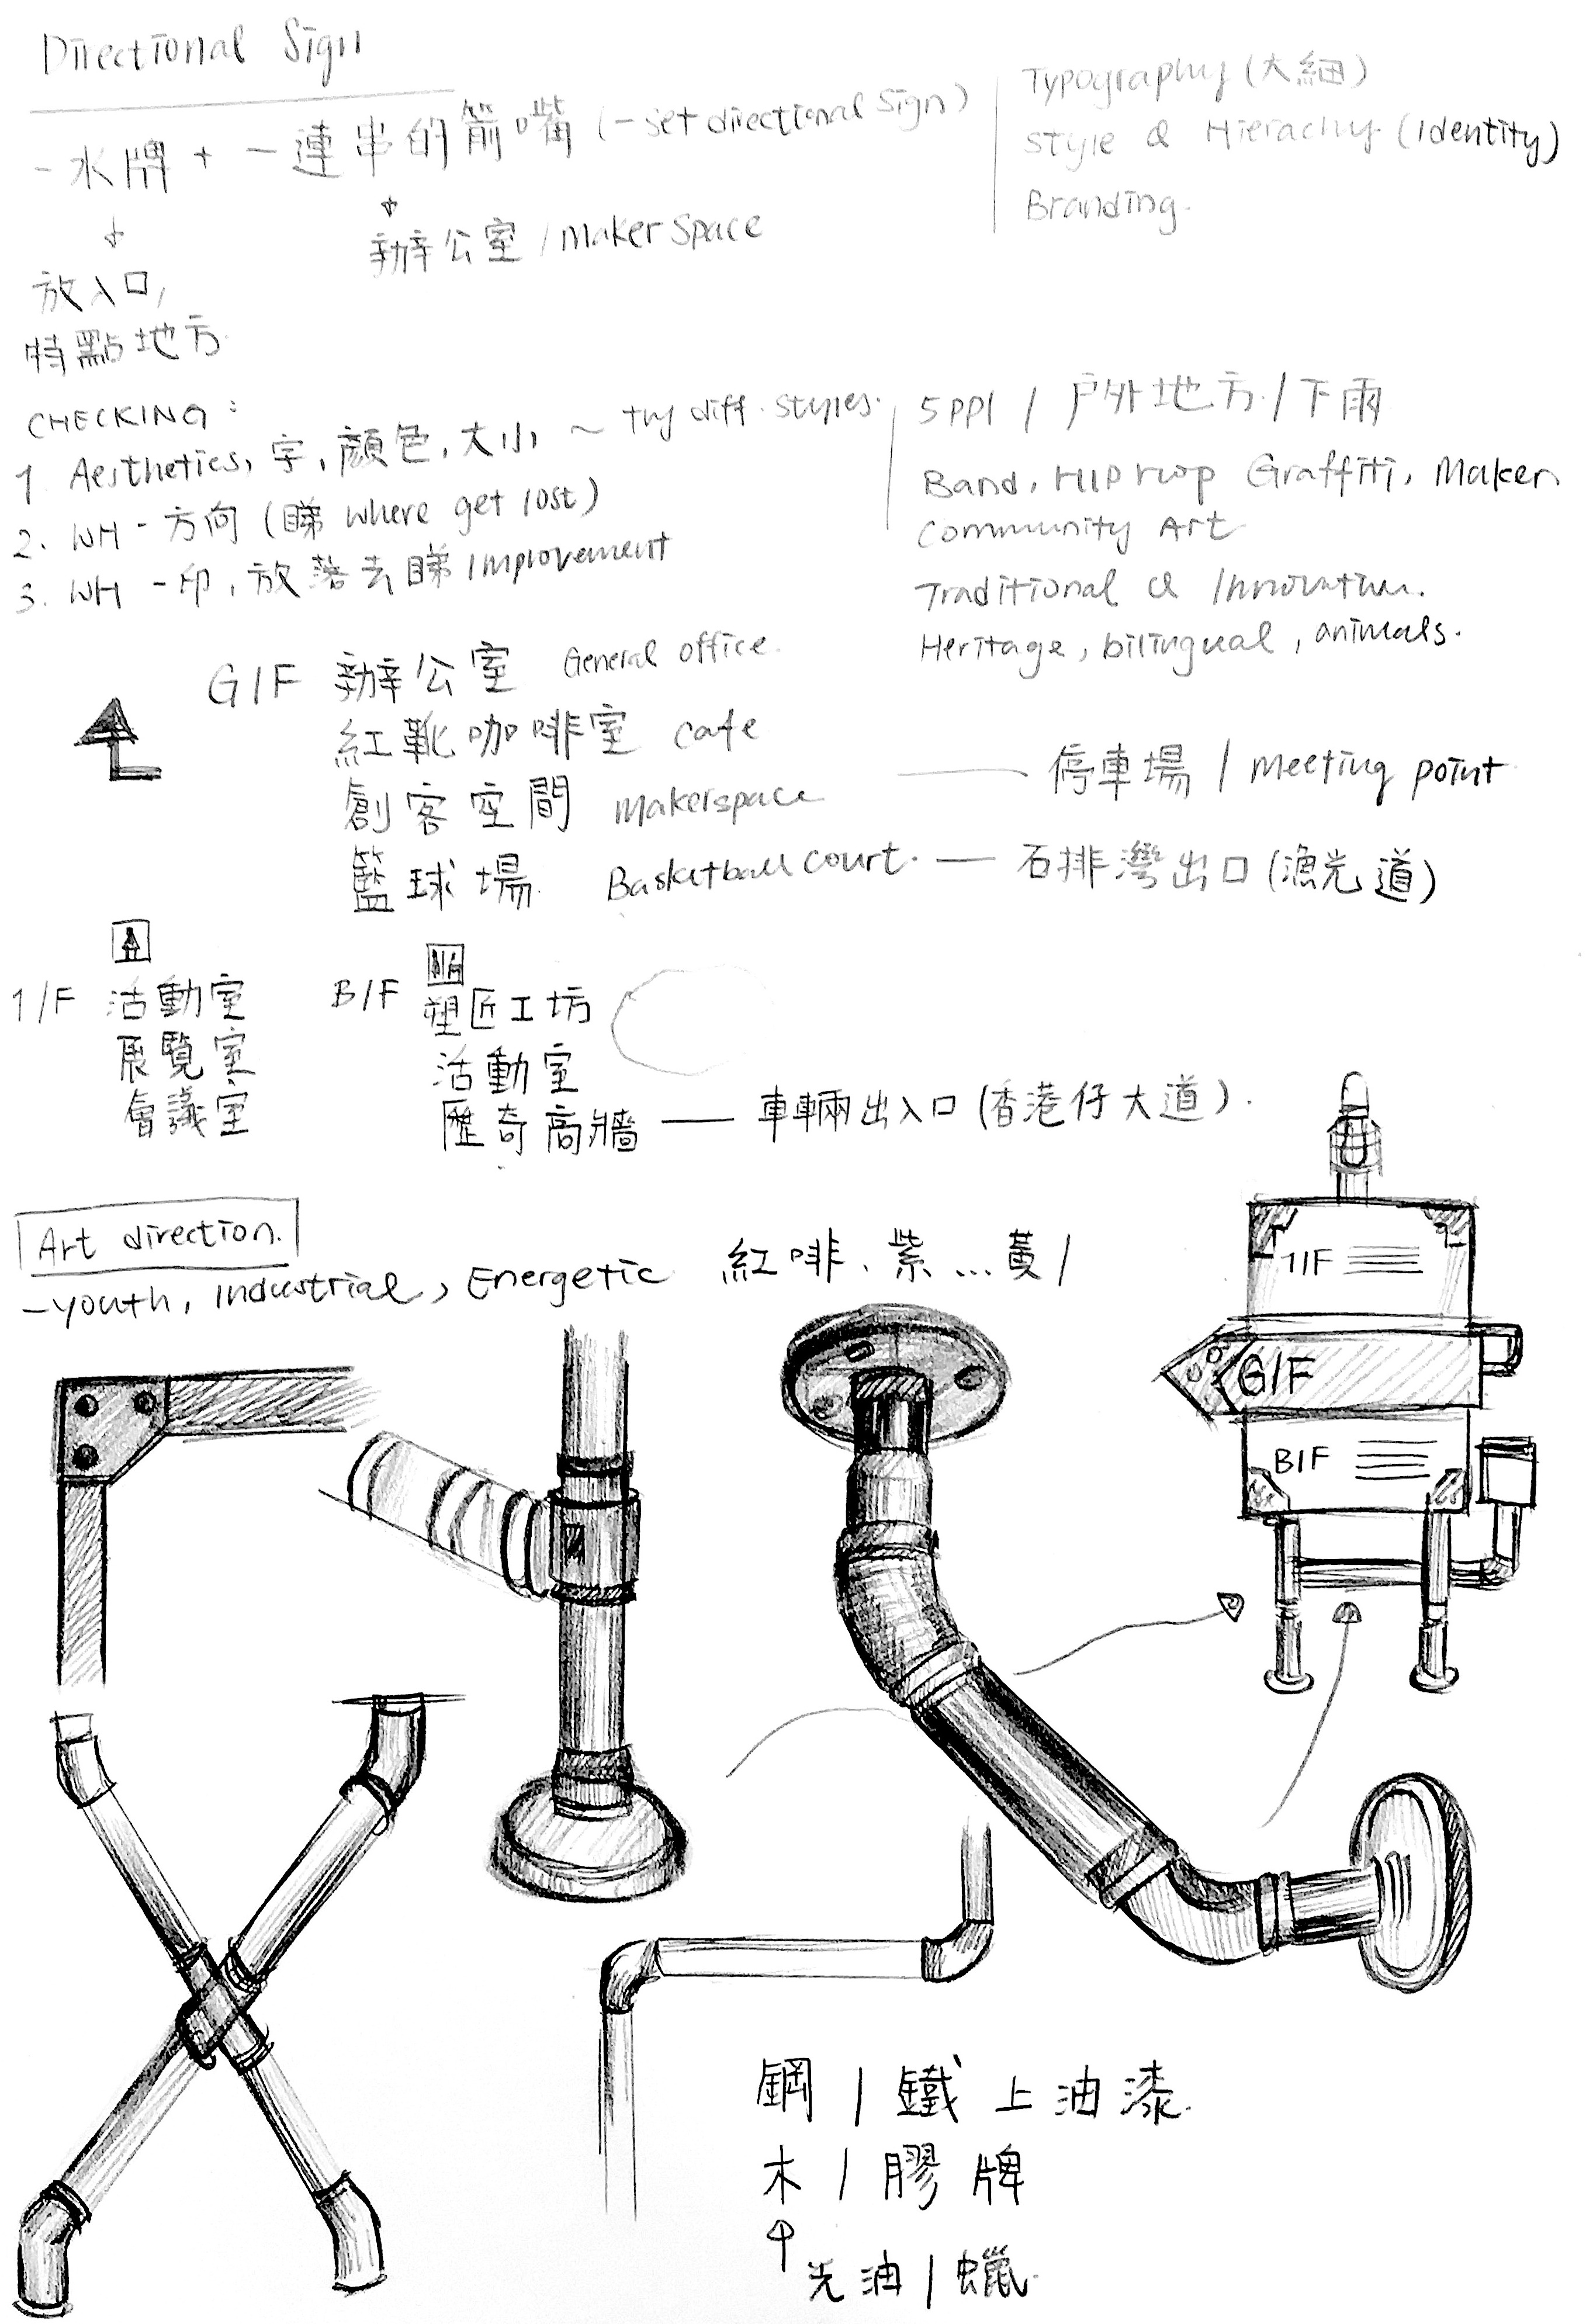 Directional Sign
- 水牌 + 一連串的箭嘴 (一 set directional sign)
辦公室 / Maker Space
放入口,
特點地方.
Typography (大細)
Style & Hierachy (Identity)
Branding.
CHECKING :
1. Aesthetics, 字, 顏色, 大小, ~ try diff. styles.
2. WH - 方向 (睇 where get lost)
3. WH - 印, 放落去睇 improvement
5 ppl / 戶外地方 / 下雨
Band, Hip Hop Graffiti, Maker
Community Art
Traditional & Innovation.
Heritage, bilingual, animals.
G/F 辦公室 General office.
紅靴咖啡室 cafe
創客空間 Makerspace — 停車場 / Meeting point
籃球場. Basketball court. — 石排灣出口 (漁光道)
1/F 活動室
展覽室
會議室
B/F 塑匠工坊
活動室
歷奇高牆 — 車輛出入口 (香港仔大道).
Art direction.
- youth, Industrial, Energetic 紅啡、紫...黃 /
1/F
G/F
B/F
鋼 / 鐵上油漆.
木 / 膠牌
光油 / 蠟.